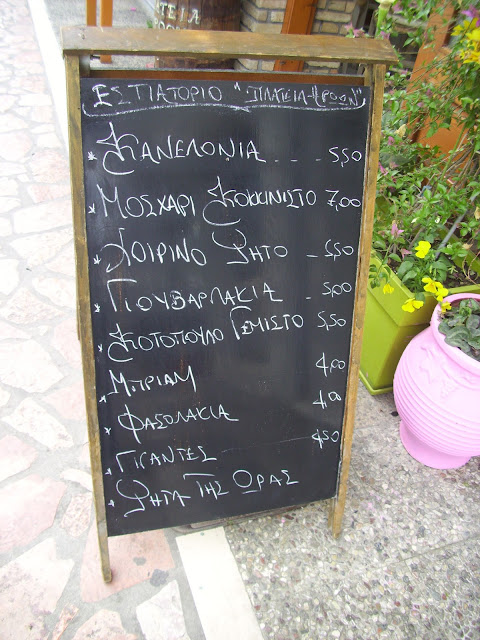 ΕΣΤΙΑΤΟΡΙΟ "ΠΛΑΤΕΙΑ ΗΡΩΩΝ"
* ΚΑΝΕΛΟΝΙΑ - - - 5,50
* ΜΟΣΧΑΡΙ ΚΟΚΚΙΝΙΣΤΟ 7,00
* ΧΟΙΡΙΝΟ ΨΗΤΟ - 5,50
* ΓΙΟΥΒΑΡΛΑΚΙΑ - 5,00
* ΚΟΤΟΠΟΥΛΟ ΓΕΜΙΣΤΟ 5,50
* ΜΠΡΙΑΜ 4,00
* ΦΑΣΟΛΑΚΙΑ 4,00
* ΓΙΓΑΝΤΕΣ 4,50
* ΨΗΤΑ ΤΗΣ ΩΡΑΣ